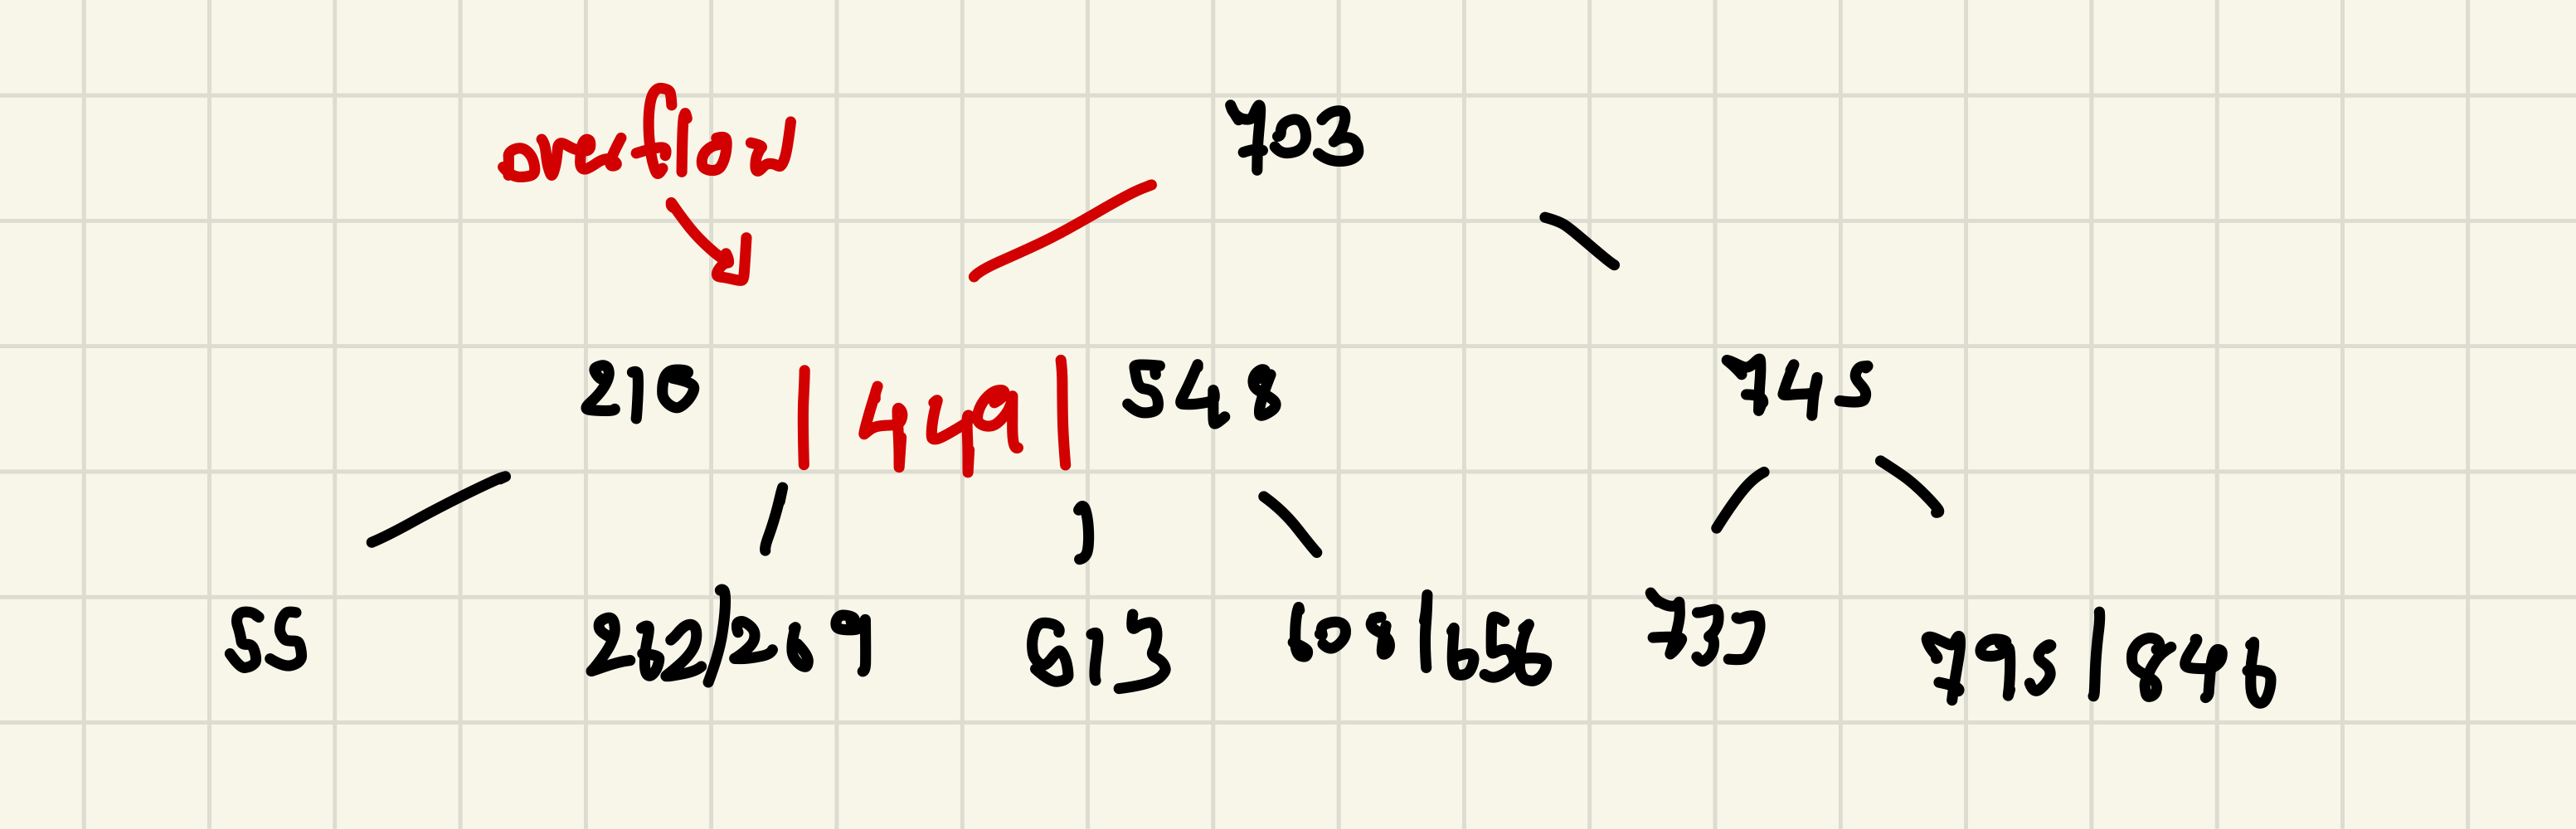 overflow 703
210 | 449 | 548 745
55 262/269 613 608|656 733 795|846